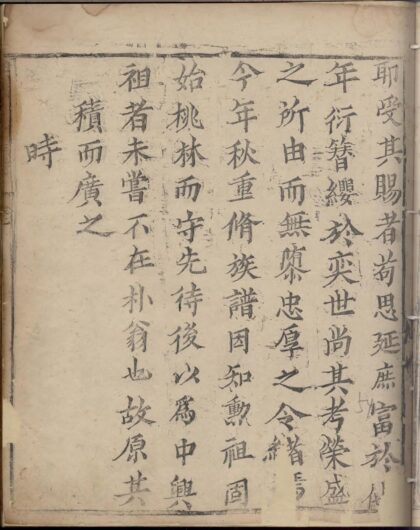 耶受其賜者苟思延庶富於
年衍簪纓於奕世尚其考榮盛
之所由而無隳忠厚之令緒焉
今年秋重脩族譜因知勳祖固
始桃林而守先待後以為中興
祖者未嘗不在朴翁也故原其
積而廣之
時